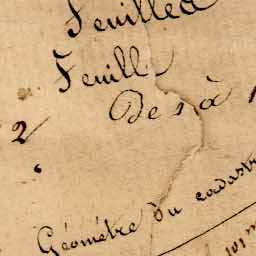 Feuille
Feuill
Des à
2
Géomètre du cadastr